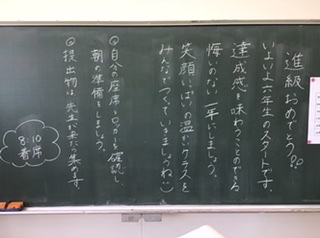 進級おめでとう!!
いよいよ六年生のスタートです。
達成感を味わうことのできる
悔いのない一年にしましょう。
笑顔いっぱいの温かいクラスを
みんなでつくっていきましょうね:)
◎自分の座席、ロッカーを確認し
朝の準備をしましょう。
◎提出物は、先生が来たら集めます。
8:10
着席